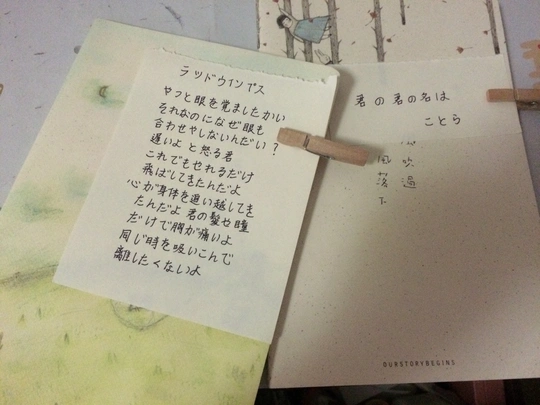 ラッドウインプス
やっと眼を覚ましたかい
それなのになぜ眼も
合わせやしないんだい？
遅いよと怒る君
これでもやれるだけ
飛ばしてきたんだよ
心が身体を追い越してき
たんだよ 君の髪や瞳
だけで胸が痛いよ
同じ時を吸いこんで
離したくないよ
君の君の名は
ことら
吹過
風落下
OURSTORYBEGINS